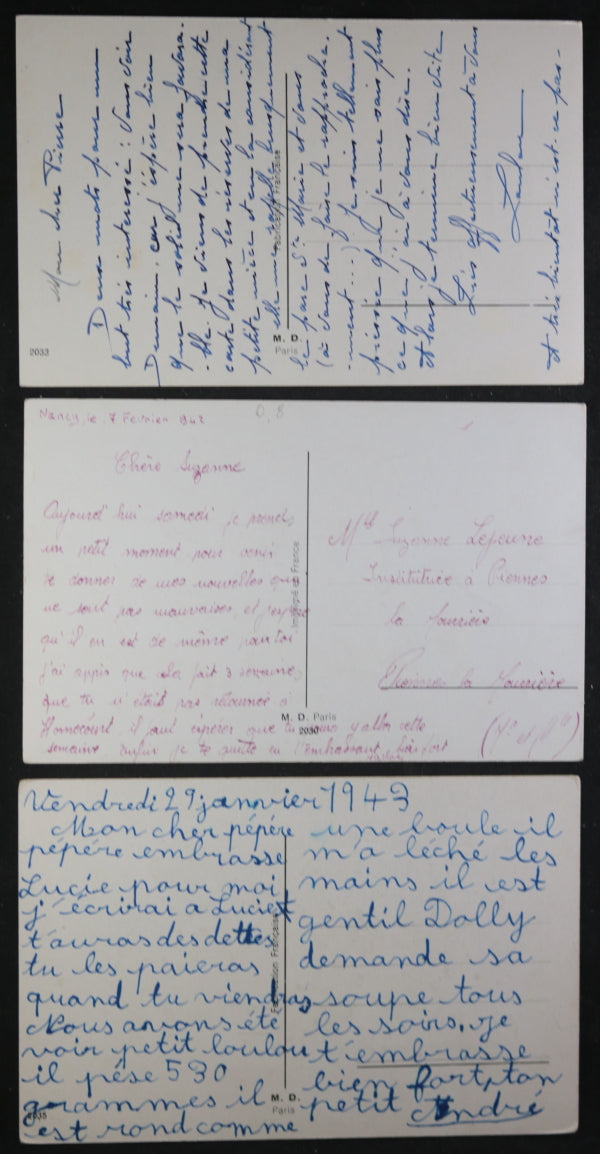 Mon cher Pierre
Deux mots pour un
but très intéressé : Vous voir
Demain, car j'espère bien
que le soleil me sera favora-
-ble. Je viens de prendre cette
carte dans les réserves de ma
petite nièce et en la considérant
elle me rappelle
le parc Ste Marie et vous
(à vous de faire le rapproche-
-ment...) Je suis tellement
pressée que je ne sais plus
ce que j'ai à vous dire.
Alors je termine bien vite
Très affectueusement à vous
et très bientôt n'est-ce pas-
2033
Fabrication Française
M. D.
Paris
Nancy, le 7 Février 1942
Chère Suzanne
Aujourd'hui samedi je prends
un petit moment pour venir
te donner de mes nouvelles qui
ne sont pas mauvaises, et j'espère
qu'il en est de même pour toi
j'ai appris que cela fait 3 semaines
que tu n'était pas retournée à
Homécourt il faut espérer que tu y alla cette
semaine. Enfin je te quitte en t'embrassant bien fort
Imprimé en France
M. D. Paris
2030
Mlle Suzanne Lejeune
Institutrice à Piennes
la
Piennes la
(Mt et Mlle)
Vendredi 29 janvier 1943
Mon cher pépère
pépère embrasse
Lucie pour moi
j'écrirai a Lucie
t'auras des dettes
tu les paieras
quand tu viendras
Nous avons été
voir petit loulou
il pèse 530
grammes il
est rond comme
une boule il
m'a léché les
mains il est
gentil Dolly
demande sa
soupe tous
les soirs. Je
t'embrasse
bien fort, ton
petit André
Fabrication Française
M. D.
Paris
2035